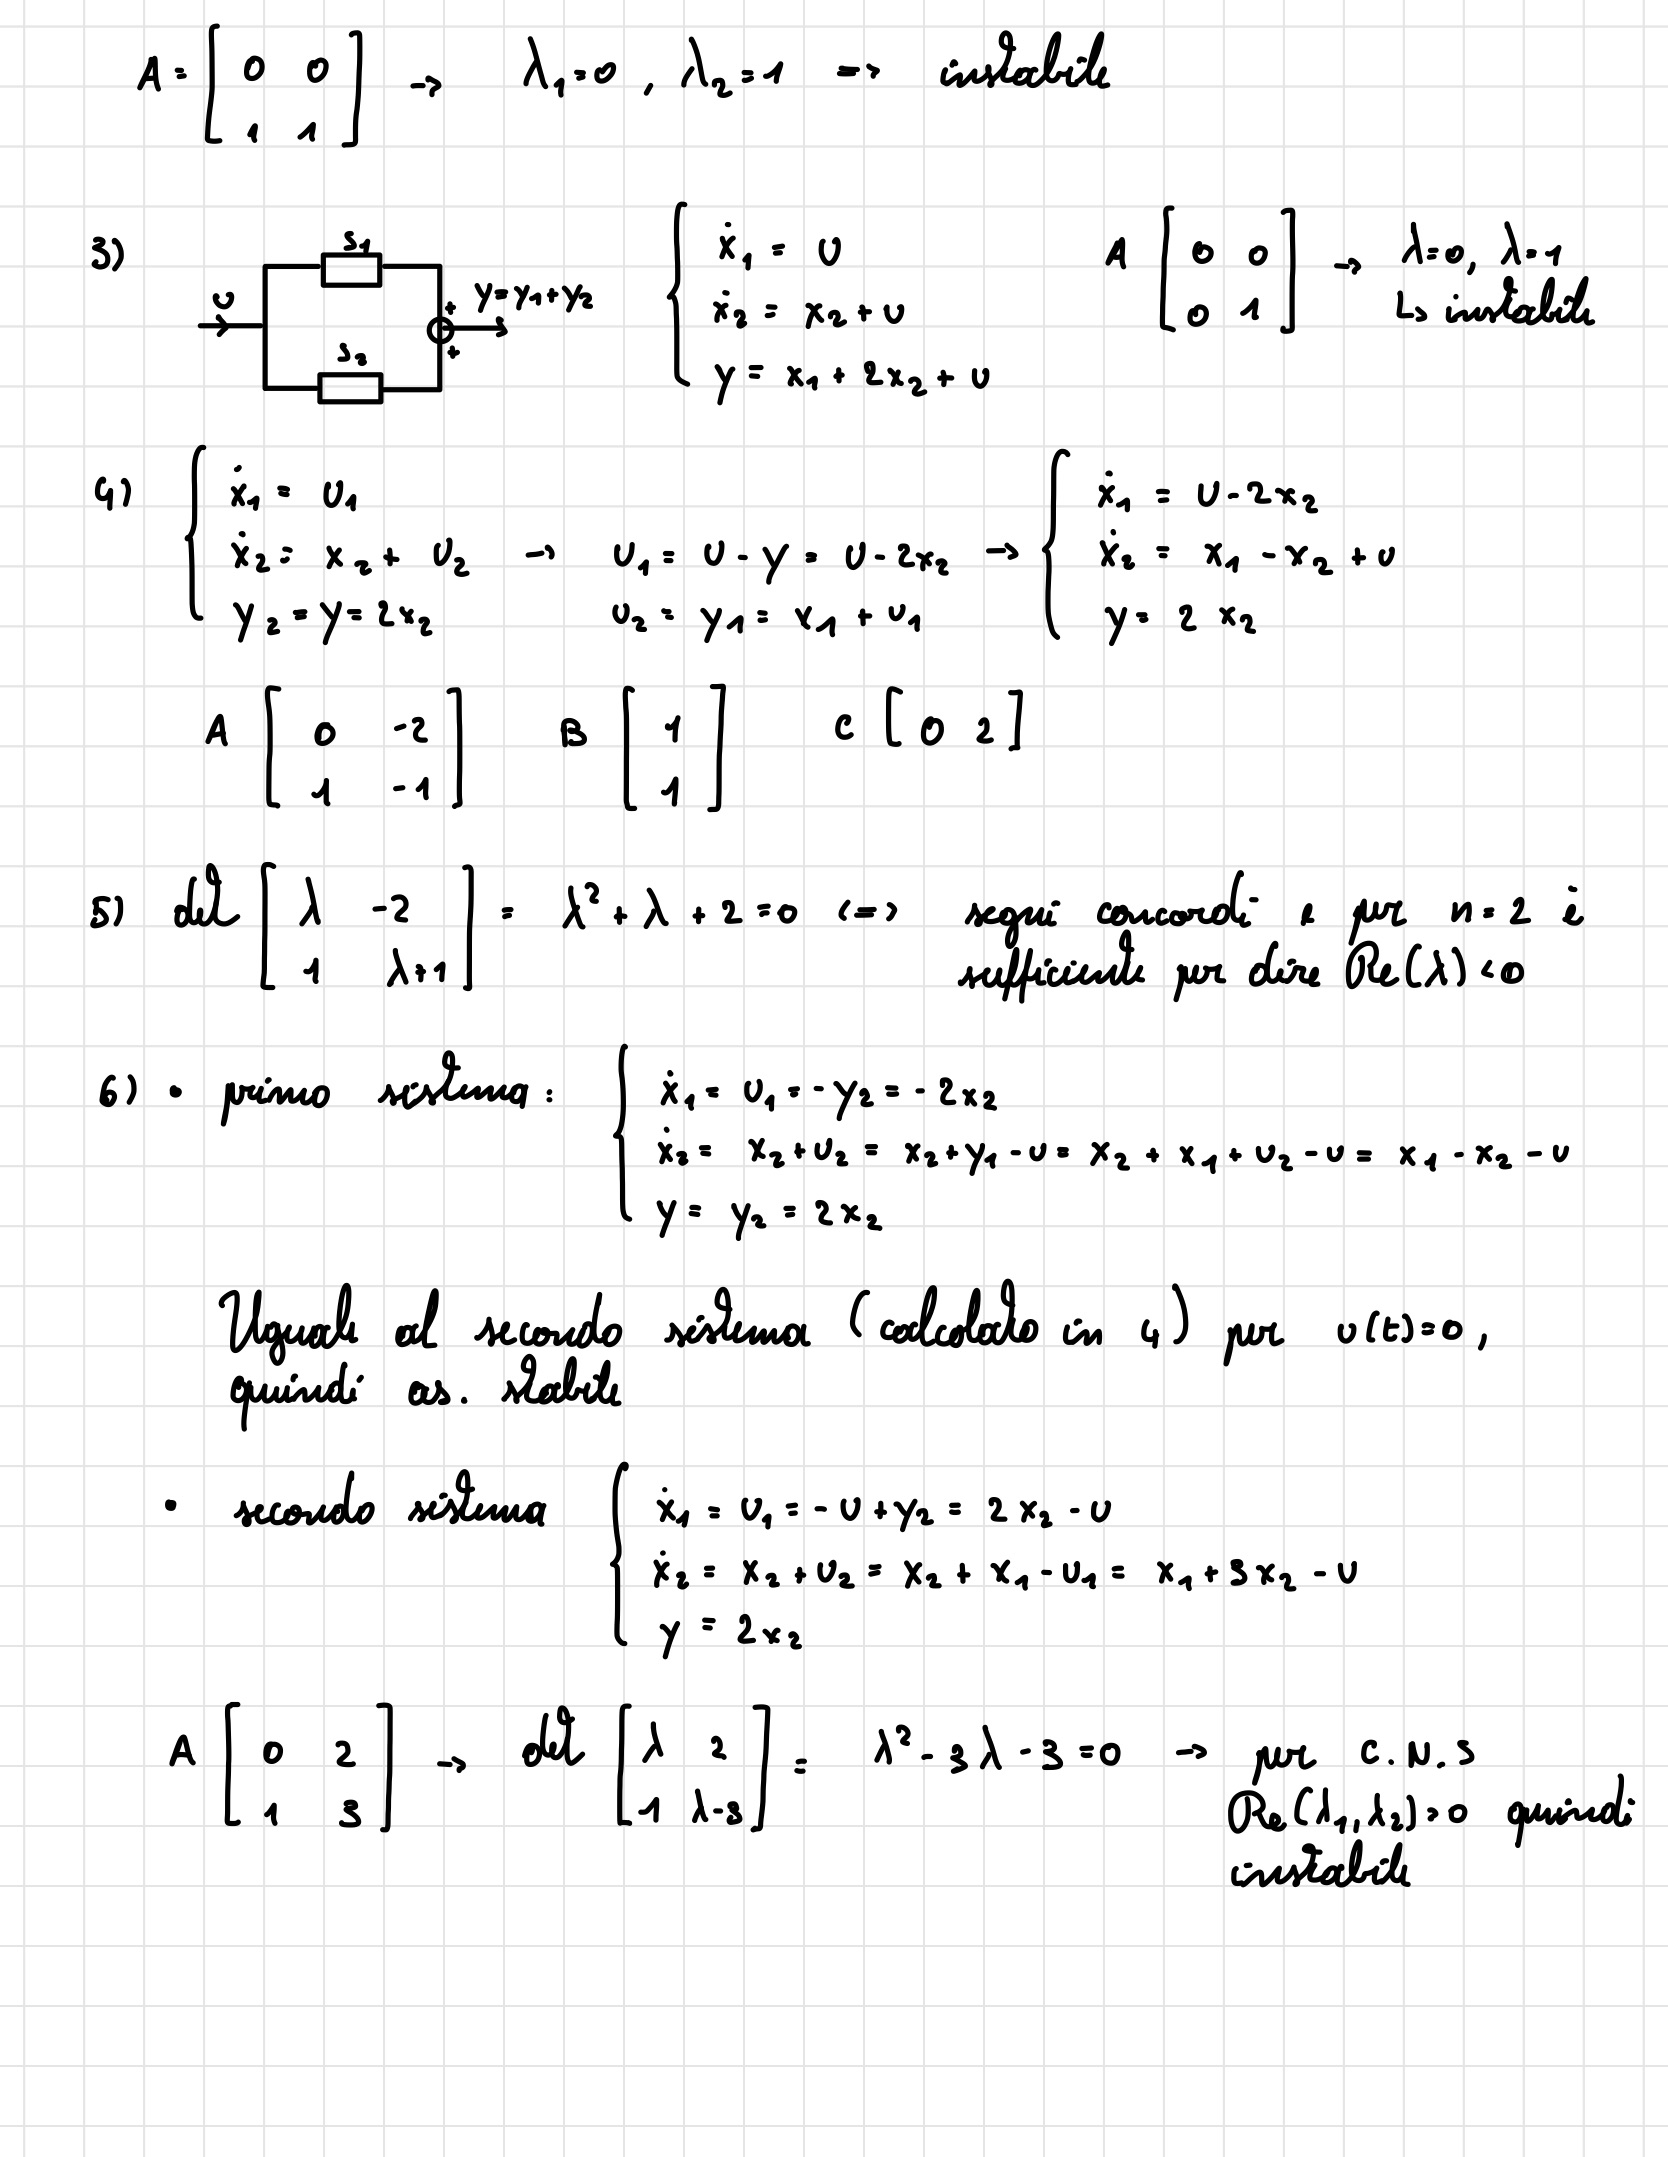 A = [ 0 0 ; 1 1 ] → λ₁=0 , λ₂=1 => instabile
3) u S₁ S₂ + + y=y₁+y₂
{ ẋ₁ = u
ẋ₂ = x₂ + u
y = x₁ + 2x₂ + u
A [ 0 0 ; 0 1 ] → λ=0, λ=1
↳ instabile
4) { ẋ₁ = u₁
ẋ₂ = x₂ + u₂
y₂ = y = 2x₂
→ u₁ = u - y = u - 2x₂
u₂ = y₁ = x₁ + u₁
→ { ẋ₁ = u - 2x₂
ẋ₂ = x₁ - x₂ + u
y = 2 x₂
A [ 0 -2 ; 1 -1 ] B [ 1 ; 1 ] C [ 0 2 ]
5) det [ λ -2 ; 1 λ+1 ] = λ² + λ + 2 = 0 <=> segni concordi e per n = 2 è
sufficiente per dire Re(λ) < 0
6) • primo sistema : { ẋ₁ = u₁ = - y₂ = - 2x₂
ẋ₂ = x₂ + u₂ = x₂ + y₁ - u = x₂ + x₁ + u₂ - u = x₁ - x₂ - u
y = y₂ = 2x₂
Uguale al secondo sistema (calcolato in 4) per u(t)=0,
quindi as. stabile
• secondo sistema { ẋ₁ = u₁ = - u + y₂ = 2x₂ - u
ẋ₂ = x₂ + u₂ = x₂ + x₁ - u₁ = x₁ + 3x₂ - u
y = 2x₂
A [ 0 2 ; 1 3 ] → det [ λ 2 ; -1 λ-3 ] = λ² - 3λ - 3 = 0 → per C.N.S
Re(λ₁,λ₂)>0 quindi
instabile